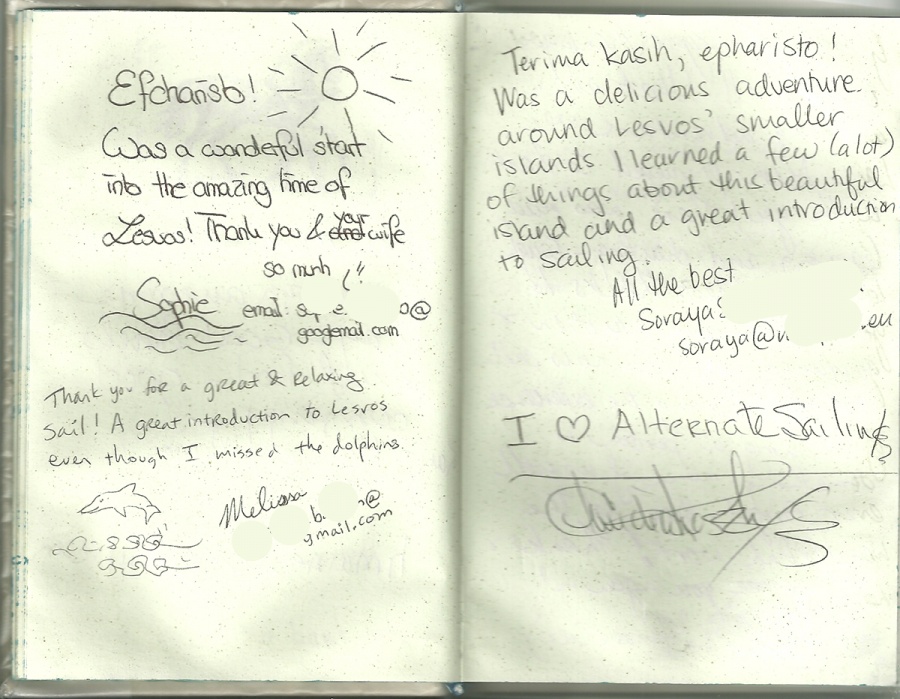 Efcharisto!
Was a wonderful start
into the amazing time of
Lesvos! Thank you & your wife
so much
Sophie email: e. @
googlemail.com
Thank you for a great & Relaxing
Sail! A great introduction to Lesvos
even though I missed the dolphins.
Melissa b. @
gmail.com
Terima kasih, epharisto!
Was a delicious adventure
around Lesvos' smaller
islands I learned a few (a lot)
of things about this beautiful
island and a great introduction
to sailing.
All the best
Soraya
soraya@ .eu
I ♡ Alternate Sailing